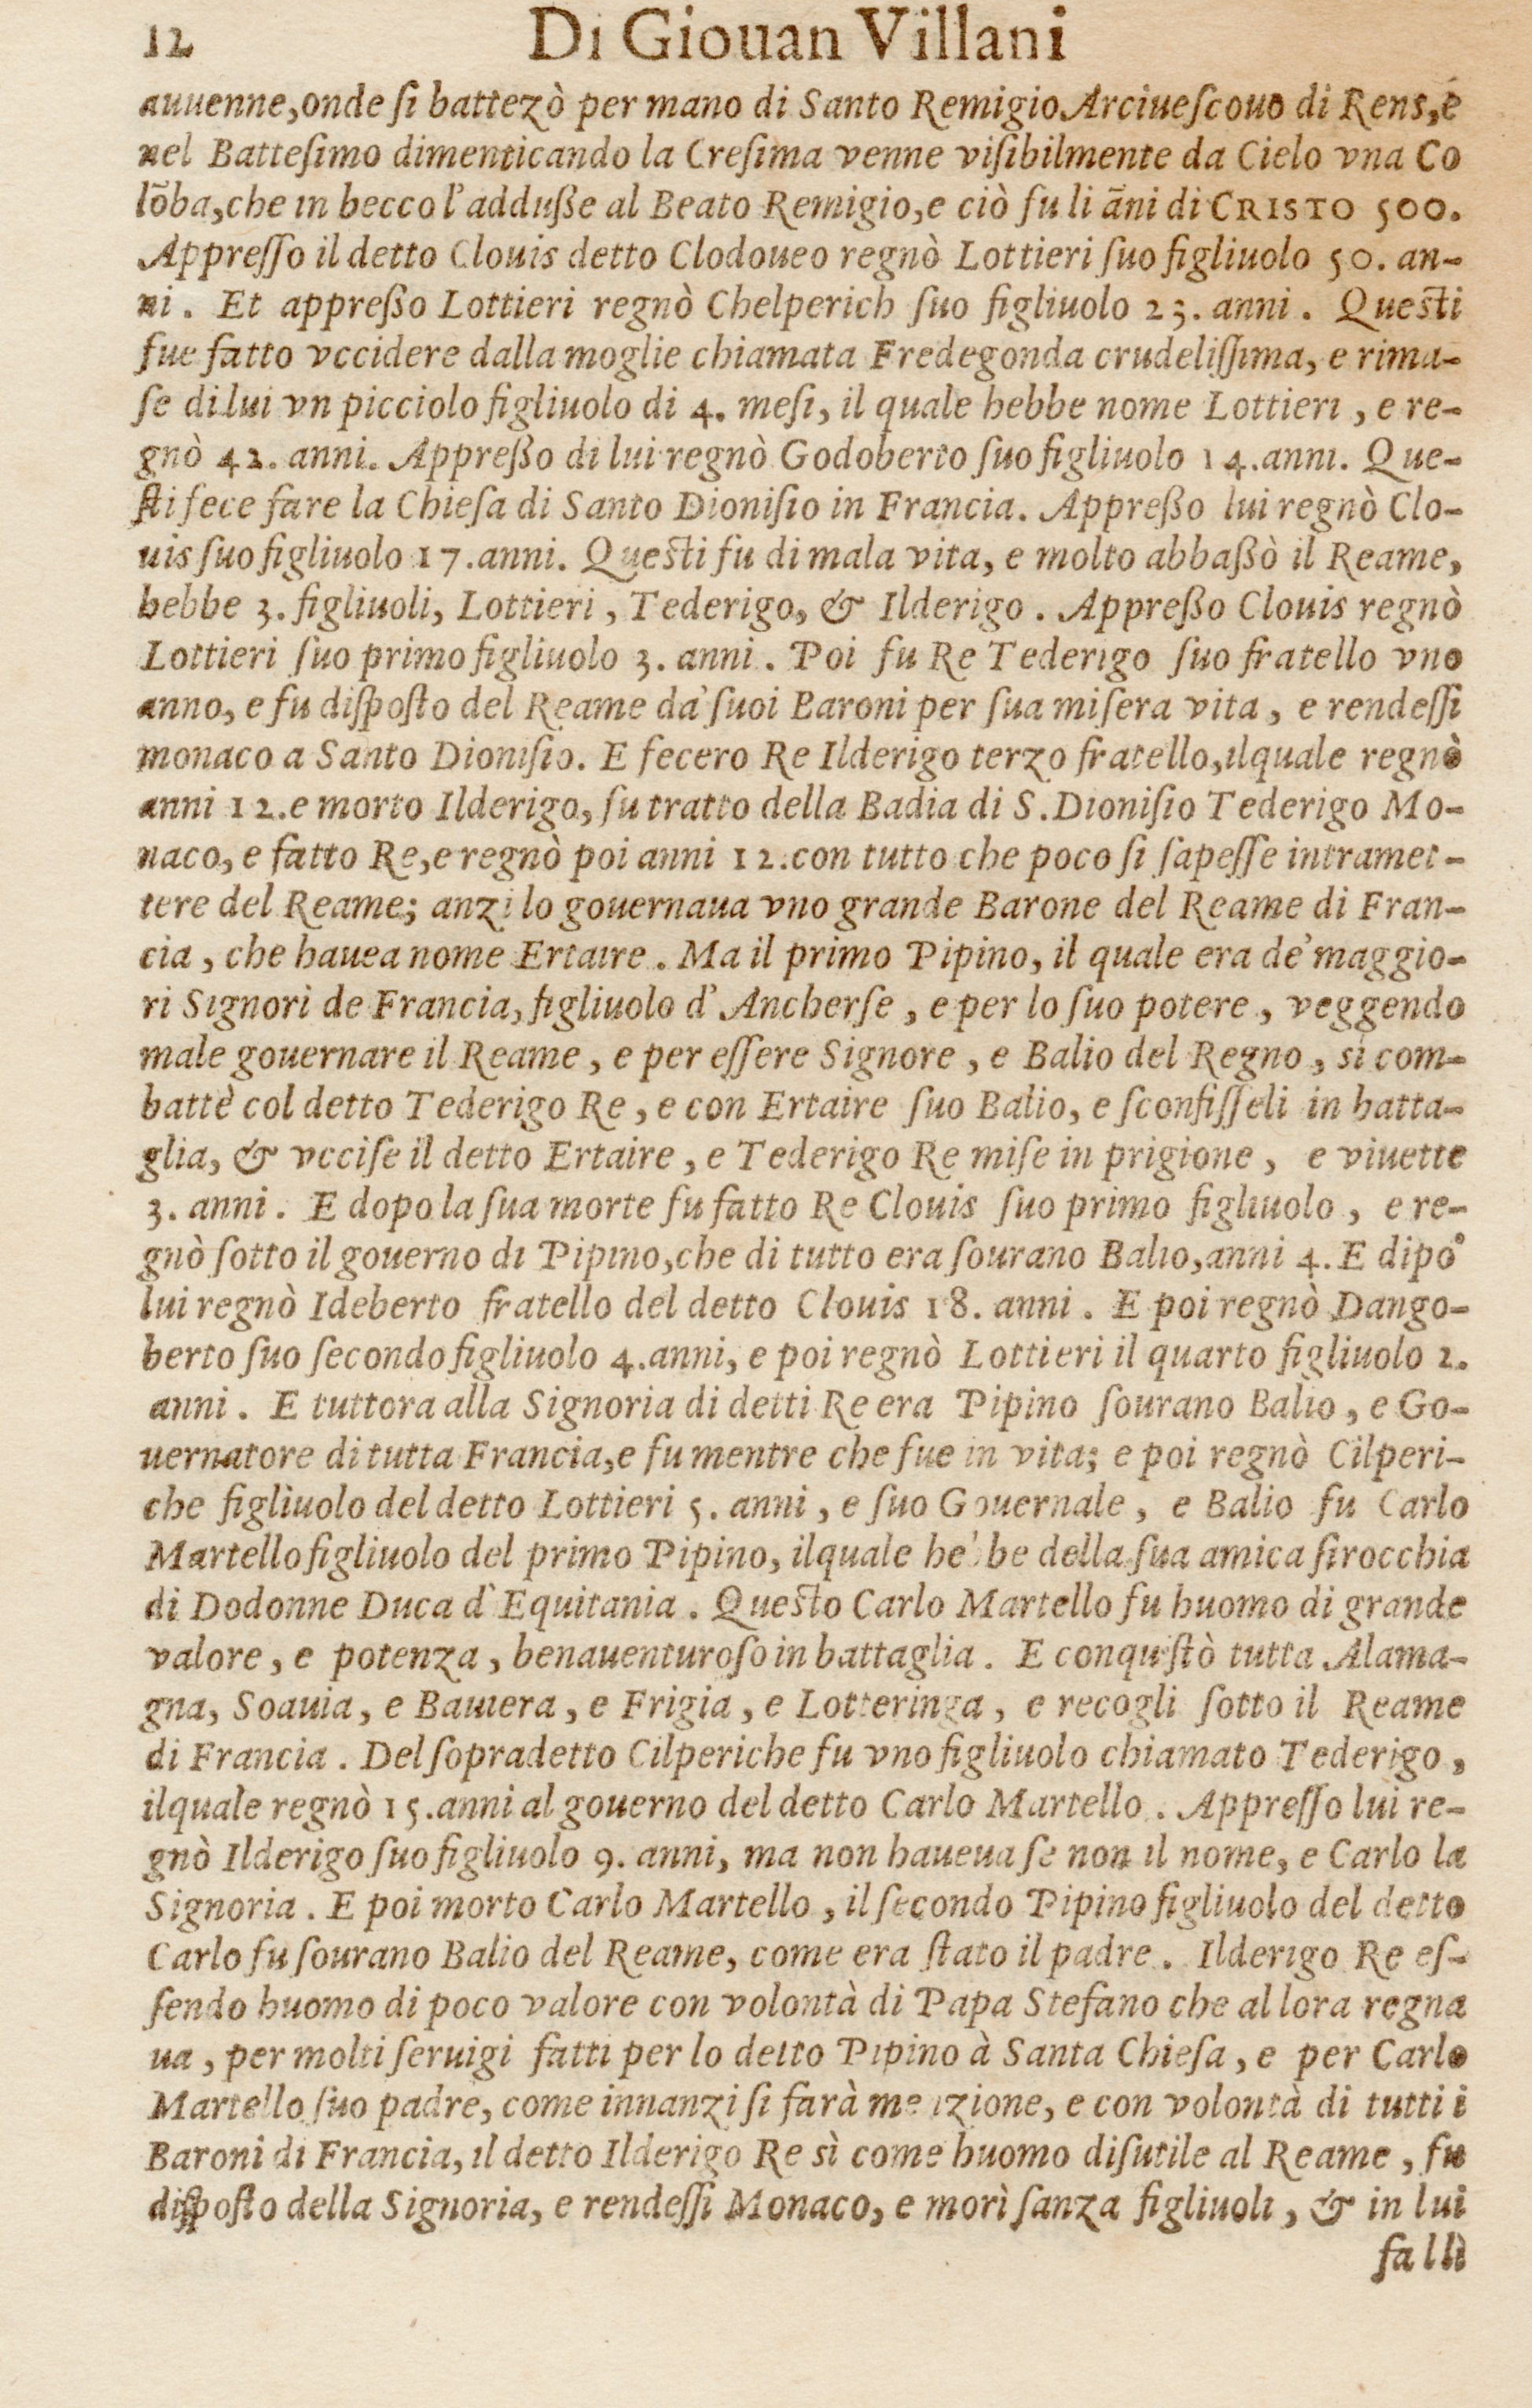 12 Di Giouan Villani
auuenne, onde ſi battezò per mano di Santo Remigio Arciueſcouo di Rens, é
nel Batteſimo dimenticando la Creſima venne viſibilmente da Cielo vna Co
lõba, che in becco l'adduße al Beato Remigio, e ciò fu li ãni di CRISTO 500.
Appreſſo il detto Clouis detto Clodoueo regnò Lottieri ſuo figliuolo 50. an-
ni. Et appreßo Lottieri regnò Chelperich ſuo figliuolo 23. anni. Queſti
fue fatto vccidere dalla moglie chiamata Fredegonda crudeliſſima, e rima-
ſe di lui vn picciolo figliuolo di 4. meſi, il quale hebbe nome Lottieri, e re-
gnò 42. anni. Appreßo di lui regnò Godoberto ſuo figliuolo 14. anni. Que-
ſti fece fare la Chieſa di Santo Dioniſio in Francia. Appreßo lui regnò Clo-
uis ſuo figliuolo 17. anni. Queſti fu di mala vita, e molto abbaßò il Reame,
hebbe 3. figliuoli, Lottieri, Tederigo, & Ilderigo. Appreßo Clouis regnò
Lottieri ſuo primo figliuolo 3. anni. Poi fu Re Tederigo ſuo fratello vno
anno, e fu diſpoſto del Reame da' ſuoi Baroni per ſua miſera vita, e rendeſſi
monaco a Santo Dioniſio. E fecero Re Ilderigo terzo fratello, ilquale regnò
anni 12. e morto Ilderigo, fu tratto della Badia di S. Dioniſio Tederigo Mo-
naco, e fatto Re, e regnò poi anni 12. con tutto che poco ſi ſapeſſe intramet-
tere del Reame; anzi lo gouernaua vno grande Barone del Reame di Fran-
cia, che hauea nome Ertaire. Ma il primo Pipino, il quale era de' maggio-
ri Signori de Francia, figliuolo d' Ancherſe, e per lo ſuo potere, veggendo
male gouernare il Reame, e per eſſere Signore, e Balio del Regno, ſi com-
battè col detto Tederigo Re, e con Ertaire ſuo Balio, e ſconfiſſeli in batta-
glia, & vcciſe il detto Ertaire, e Tederigo Re miſe in prigione, e viuette
3. anni. E dopo la ſua morte fu fatto Re Clouis ſuo primo figliuolo, e re-
gnò ſotto il gouerno di Pipino, che di tutto era ſourano Balio, anni 4. E dipo
lui regnò Ideberto fratello del detto Clouis 18. anni. E poi regnò Dango-
berto ſuo ſecondo figliuolo 4. anni, e poi regnò Lottieri il quarto figliuolo 2.
anni. E tuttora alla Signoria di detti Re era Pipino ſourano Balio, e Go-
uernatore di tutta Francia, e fu mentre che fue in vita; e poi regnò Cilperi-
che figliuolo del detto Lottieri 5. anni, e ſuo Gouernale, e Balio fu Carlo
Martello figliuolo del primo Pipino, ilquale hebbe della ſua amica ſirocchia
di Dodonne Duca d' Equitania. Queſto Carlo Martello fu huomo di grande
valore, e potenza, benauenturoſo in battaglia. E conquiſtò tutta Alama-
gna, Soauia, e Bauiera, e Frigia, e Lotteringa, e recogli ſotto il Reame
di Francia. Del ſopradetto Cilperiche fu vno figliuolo chiamato Tederigo,
ilquale regnò 15. anni al gouerno del detto Carlo Martello. Appreſſo lui re-
gnò Ilderigo ſuo figliuolo 9. anni, ma non haueua ſe non il nome, e Carlo la
Signoria. E poi morto Carlo Martello, il ſecondo Pipino figliuolo del detto
Carlo fu ſourano Balio del Reame, come era ſtato il padre. Ilderigo Re eſ-
ſendo huomo di poco valore con volontà di Papa Stefano che allora regna
ua, per molti ſeruigi fatti per lo detto Pipino à Santa Chieſa, e per Carlo
Martello ſuo padre, come innanzi ſi farà menzione, e con volontà di tutti i
Baroni di Francia, il detto Ilderigo Re sì come huomo diſutile al Reame, fu
diſpoſto della Signoria, e rendeſſi Monaco, e morì ſanza figliuoli, & in lui
fallì